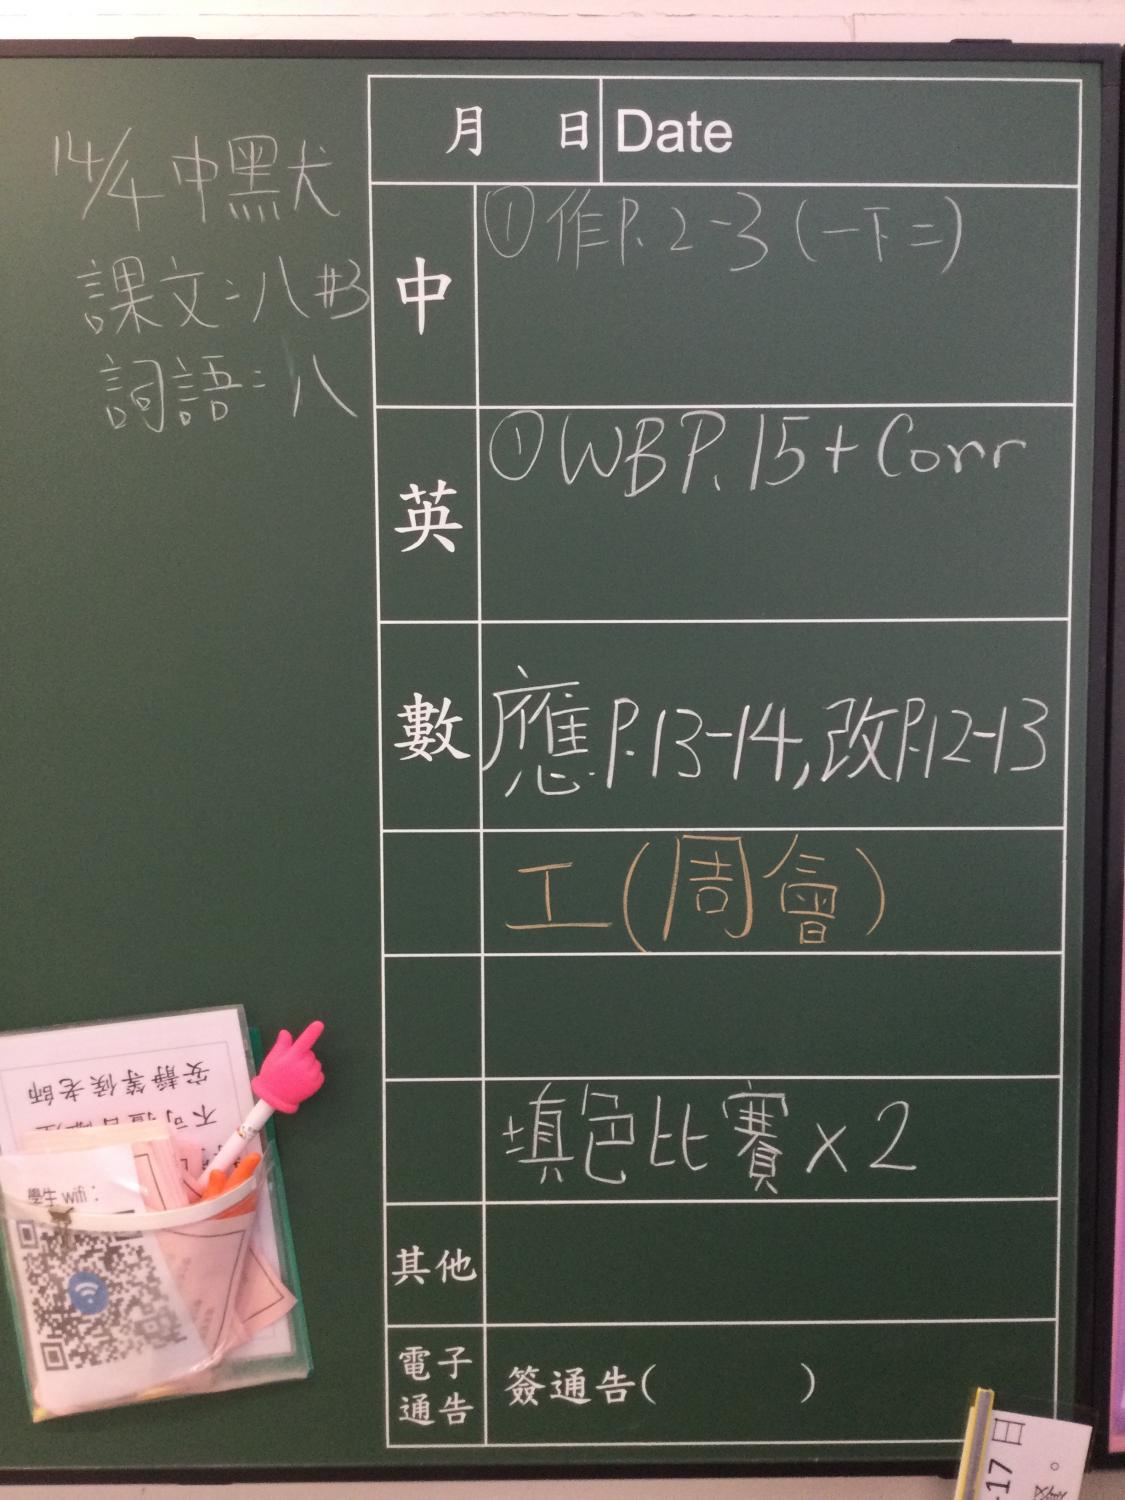 14/4 中默
課文:八 #3
詞語:八
月 日 Date
中 ①作P.2-3(一下二)
英 ①WB P.15+Corr
數 應P.13-14,改P.12-13
工(周會)
填色比賽x2
其他
電子通告 簽通告( )
安靜等候老師
學生wifi:
-17日